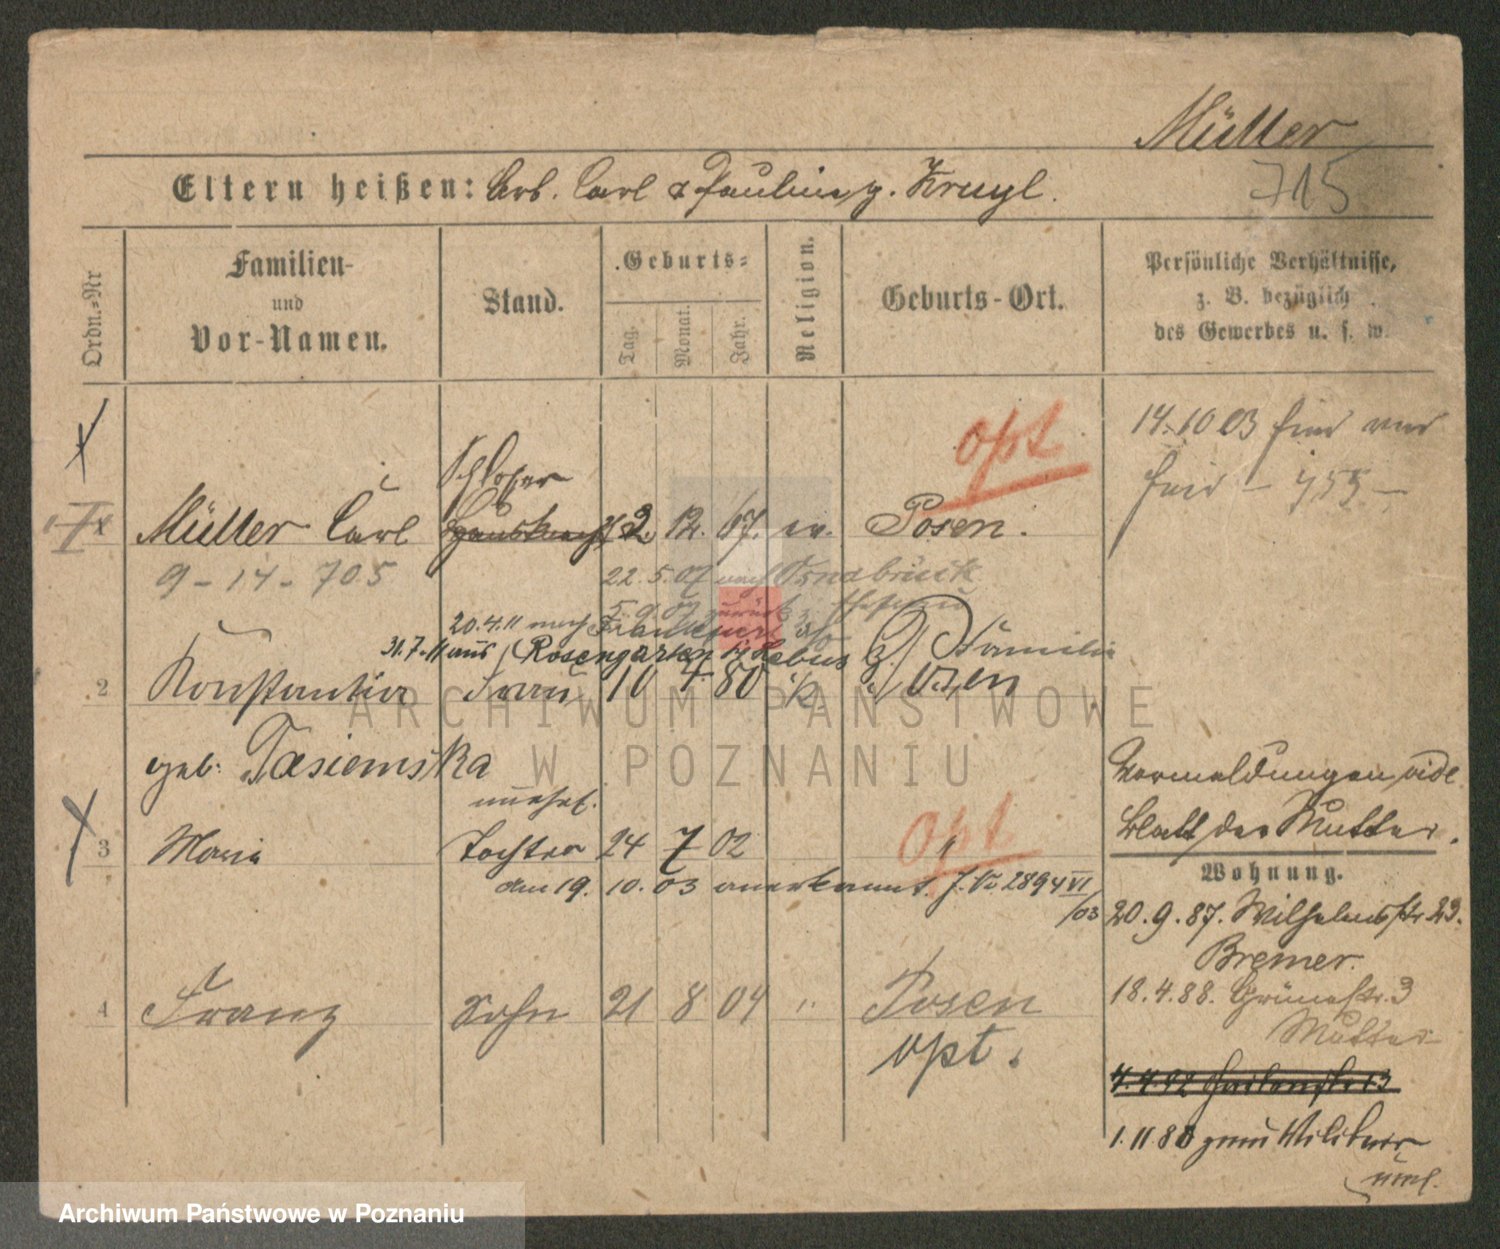 Müller
715
Eltern heißen: Arb. Carl & Pauline g. Krugl.
Ordn.=Nr
Familien-
und
Vor-Namen.
Stand.
Geburts=
Tag.
Monat.
Jahr.
Religion.
Geburts-Ort.
Persönliche Verhältnisse,
z. B. bezüglich
des Gewerbes u. s. w.
opt
14.10 03
Schlosser
Müller Carl Hausknecht 2. 12. 67. ev. Posen.
9 - 14 - 705
22.5.07 nach Osnabrück
5.9.07 zurück
20.4.11 nach Frankfurt a/o
31.7.11 aus Rosengarten Kr Lebus
2 Konstantia Frau 10 4 80 Posen
geb. Tasiemska
unehel.
3 Maria Tochter 24 7 02 "
opt
den 19. 10. 03 anerkannt. J. No 2894 VI
/03
4 Franz Sohn 21 8 04 " Posen
opt.
Vormeldungen vide
Blatt der Mutter.
Wohnung.
20.9.87. Wilhelmsstr 23.
Bremer.
18.4.88. Grünestr. 3
Mutter
1.11 88 zum Militair
ARCHIWUM PAŃSTWOWE
W POZNANIU
Archiwum Państwowe w Poznaniu